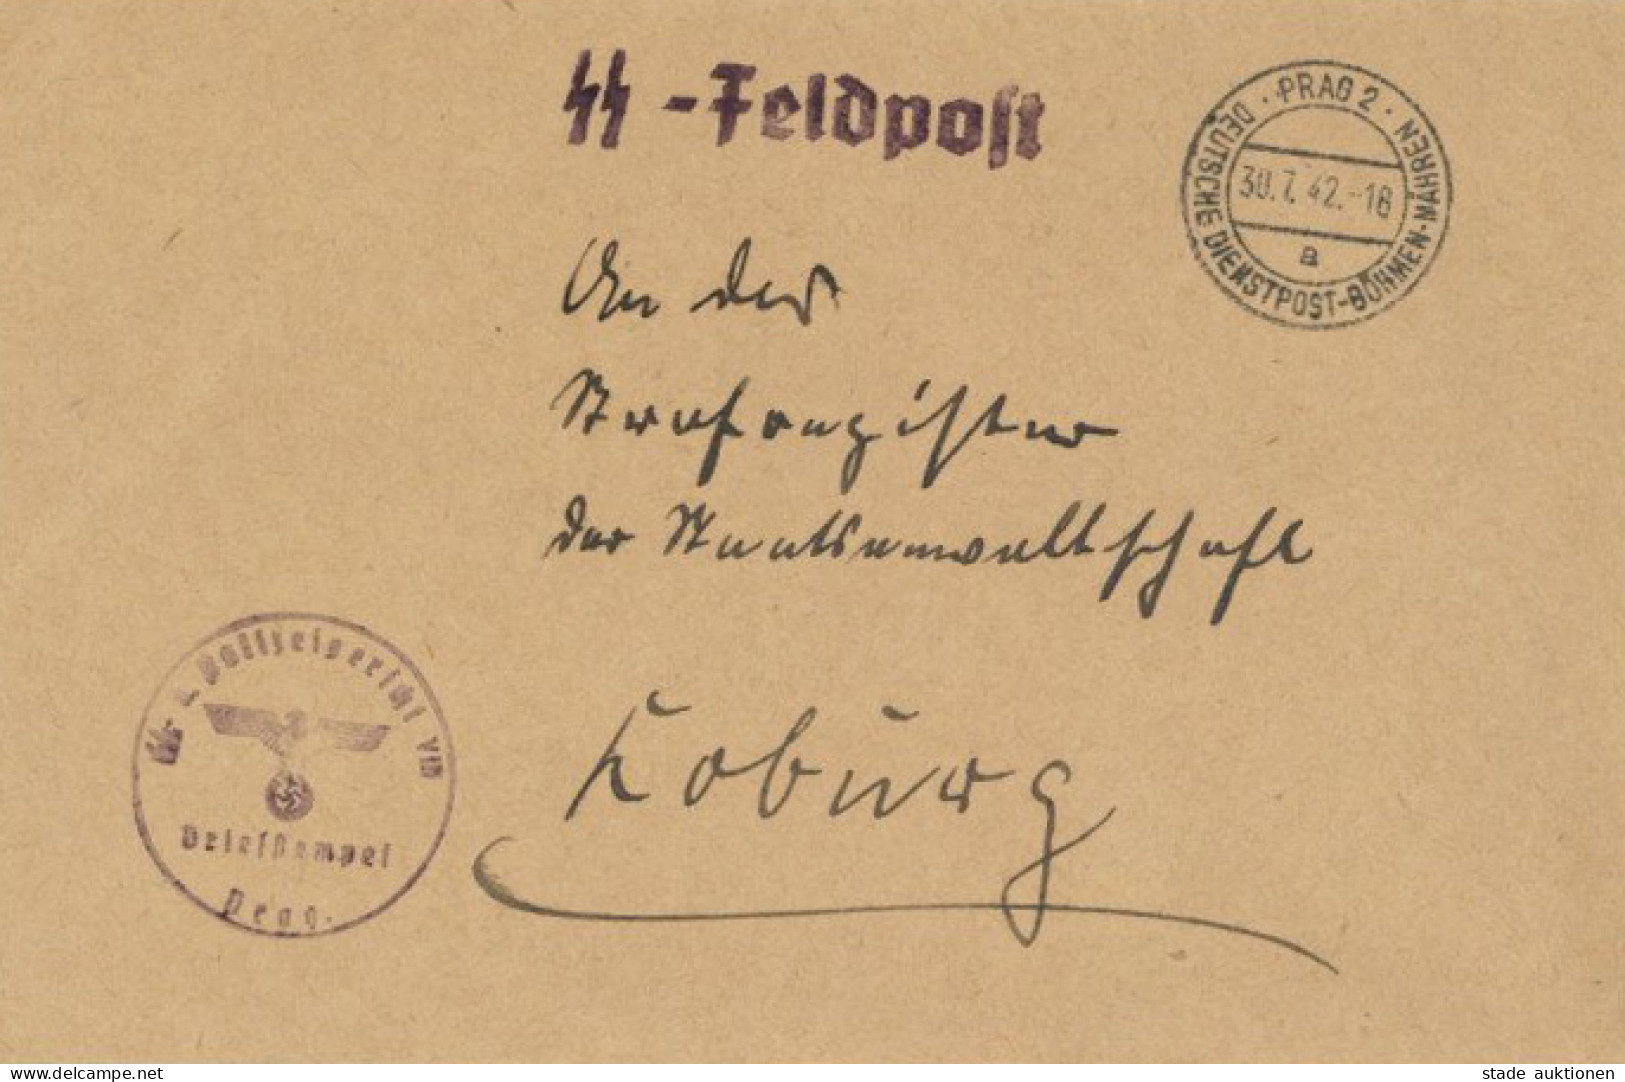 SS-Feldpost
· PRAG 2 ·
DEUTSCHE DIENSTPOST-BÖHMEN-MÄHREN
30.7.42.-18
a
An das
Strafregister
der Staatsanwaltschaft
Coburg
SS- u. Polizeigericht VIII
Briefstempel
Prag.
delcampe.net
stade auktionen